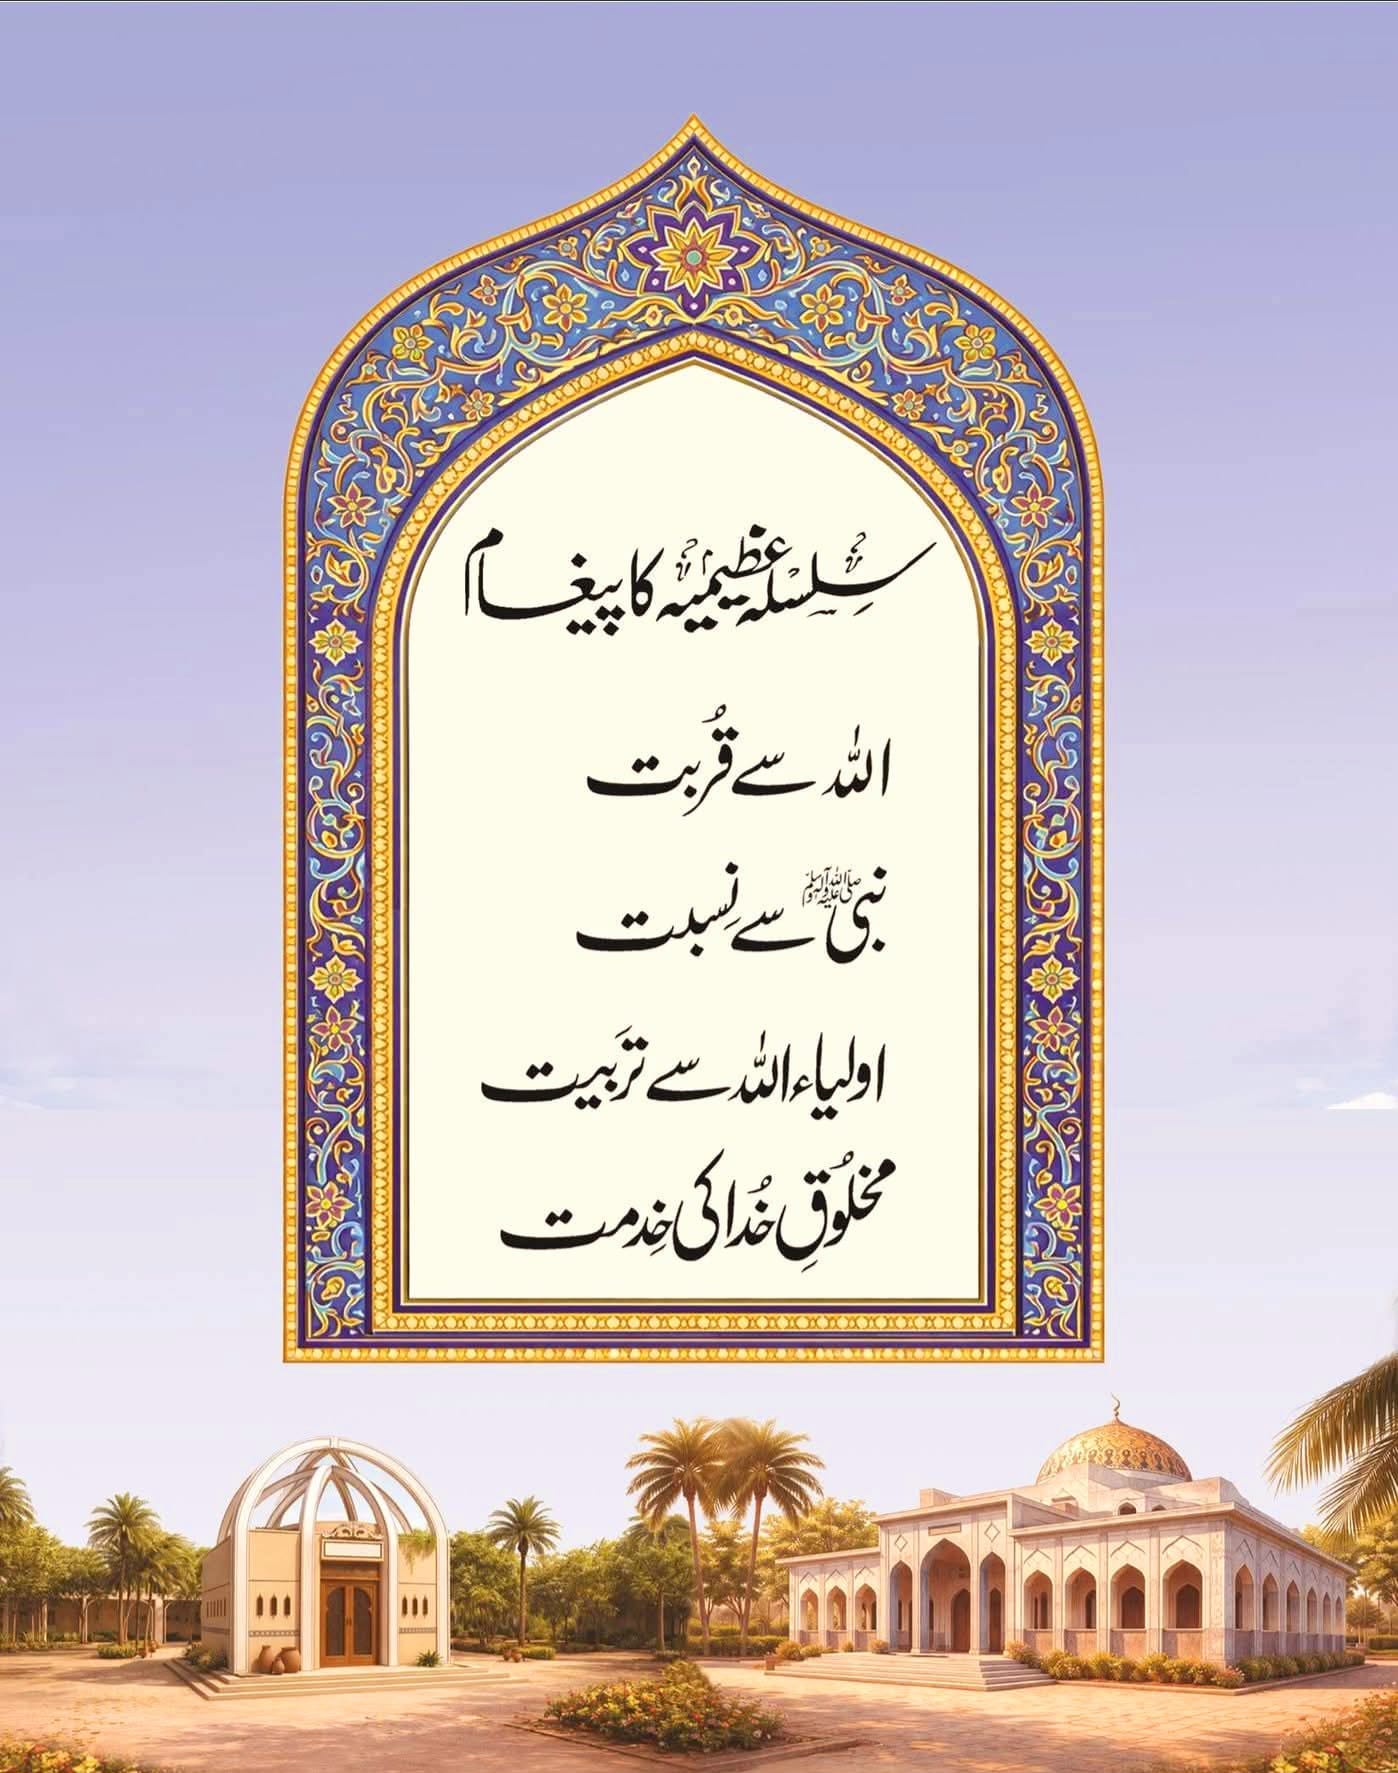 سِلسلہ عظیمیہ کا پیغام
اللہ سے قُربت
نبی ﷺ سے نِسبت
اولیاء اللہ سے تربَیت
مخلُوقِ خُدا کی خِدمت